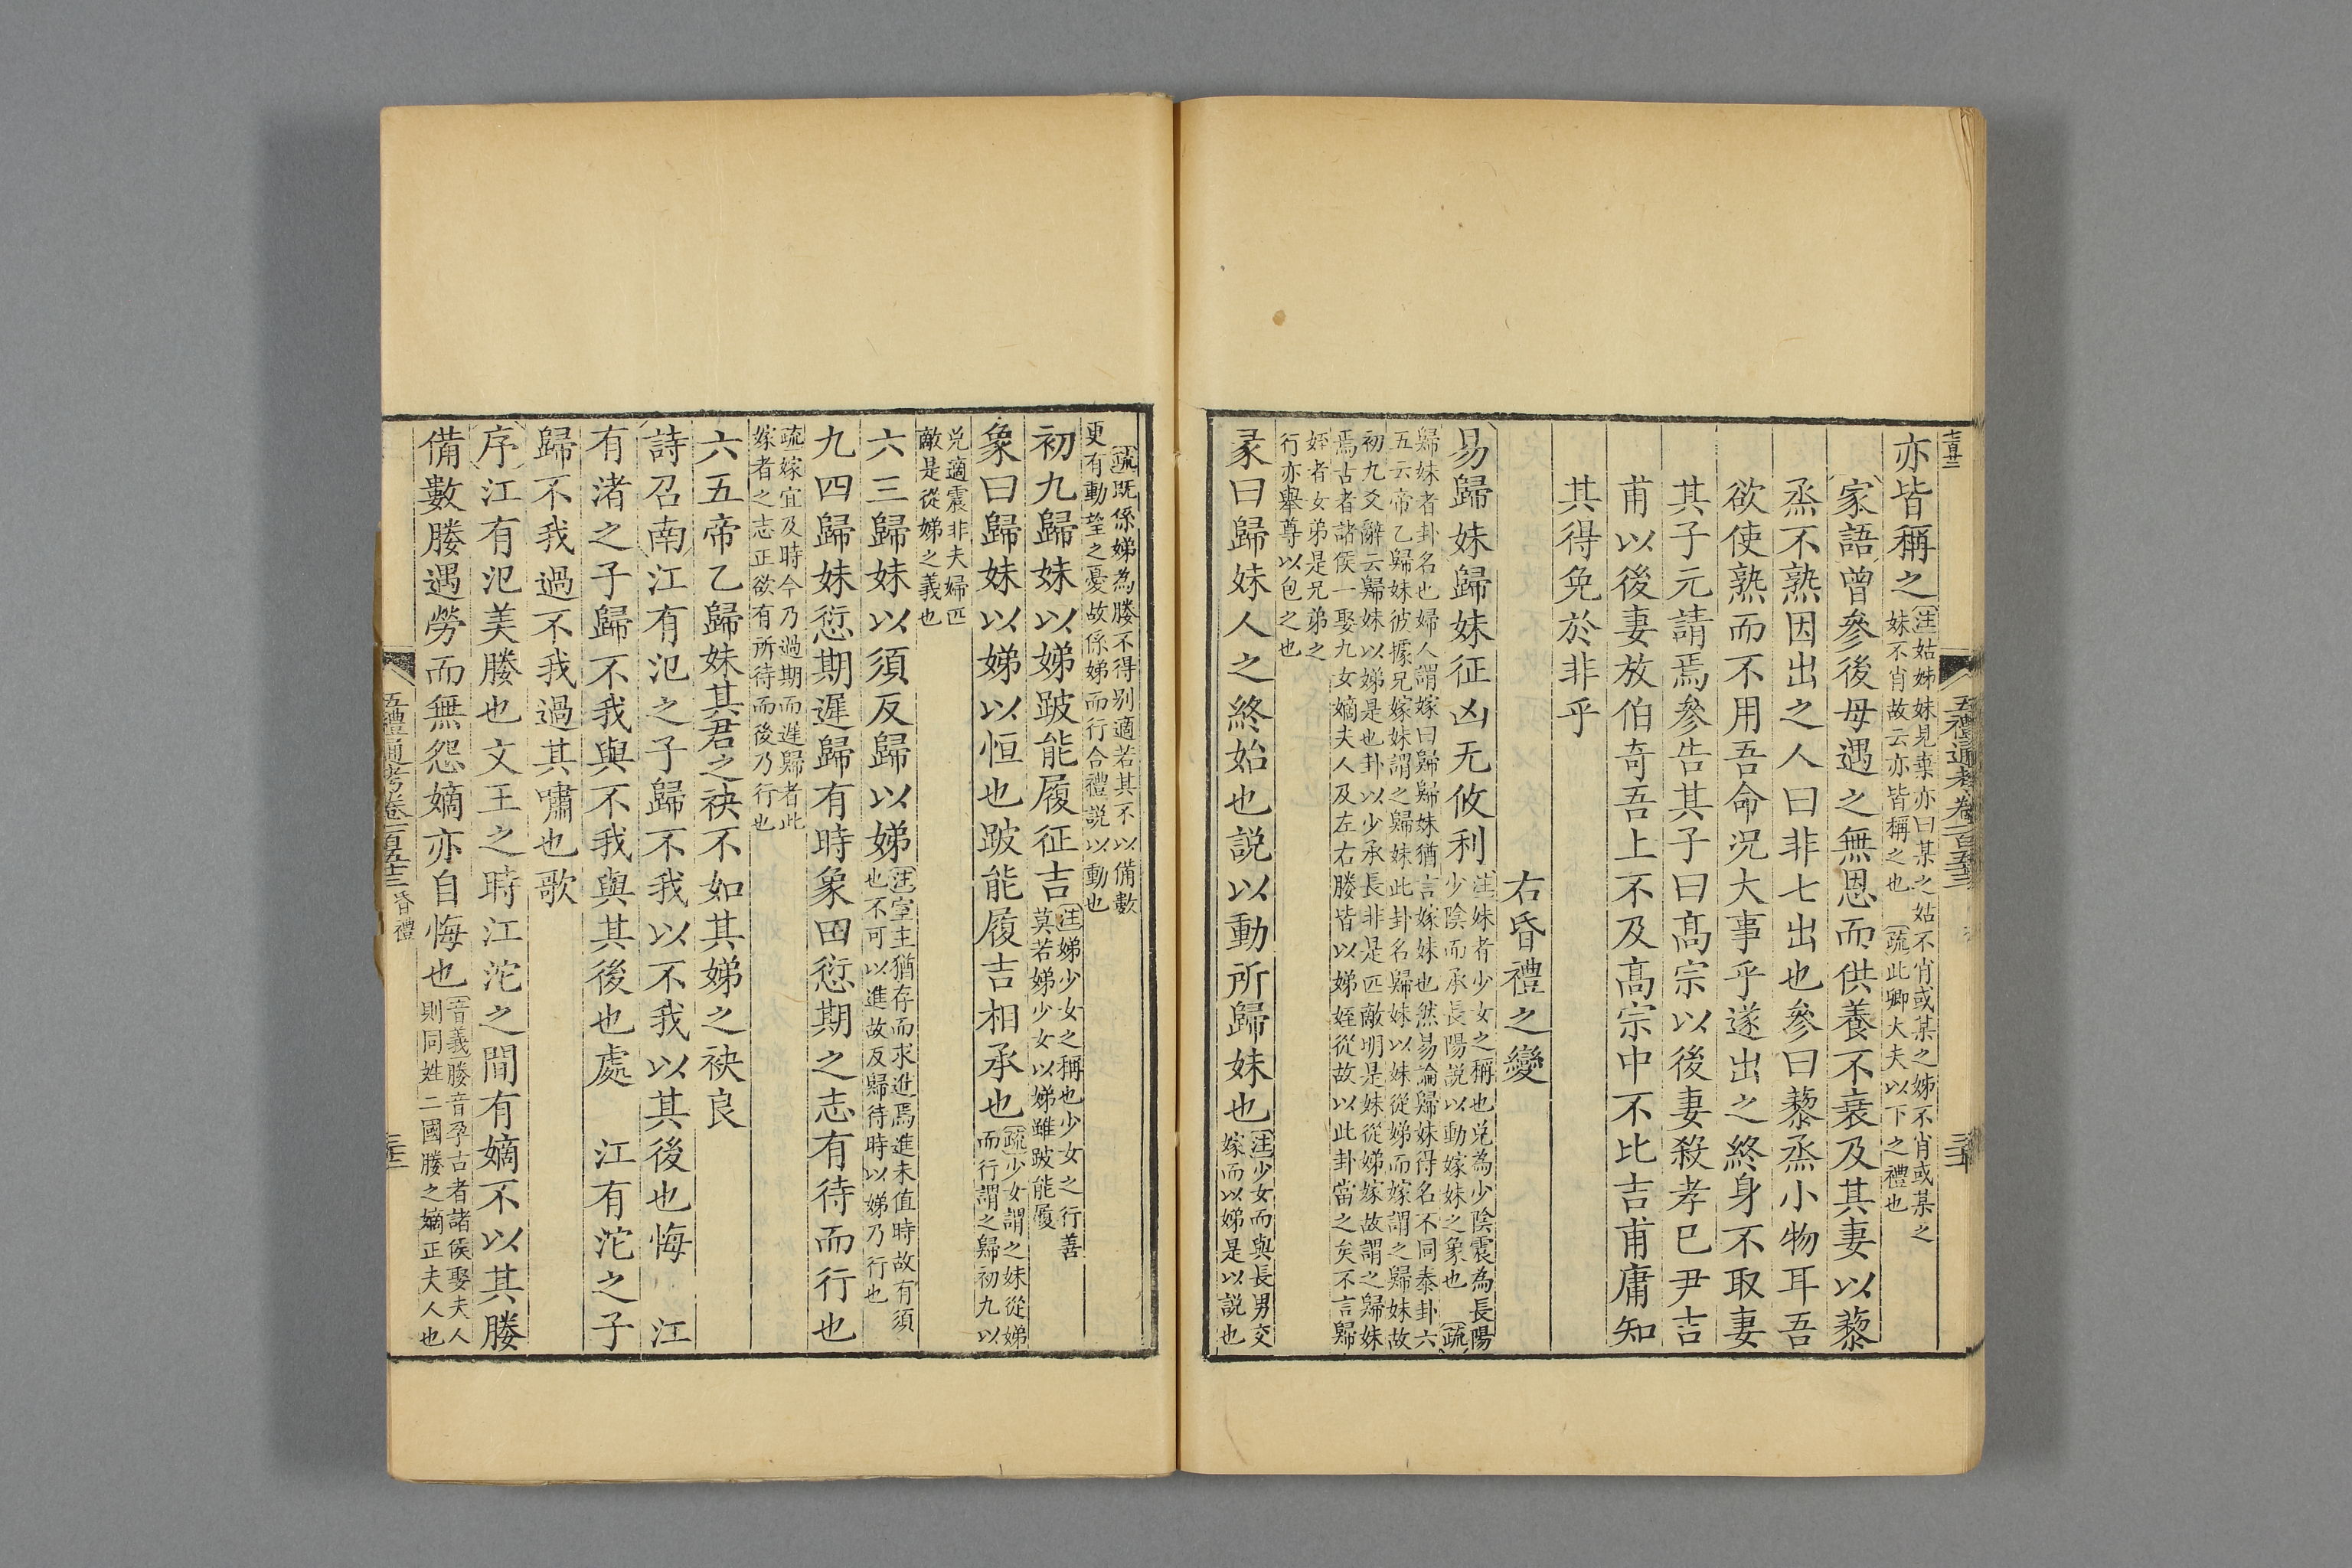 亦皆稱之
注姑姊妹見棄亦曰某之姑不肖或某之姊不肖或某之
妹不肖故云亦皆稱之也 疏此卿大夫以下之禮也
家語曾參後母遇之無恩而供養不衰及其妻以藜
烝不熟因出之人曰非七出也參曰藜烝小物耳吾
欲使熟而不用吾命況大事乎遂出之終身不取妻
其子元請焉參告其子曰髙宗以後妻殺孝已尹吉
甫以後妻放伯奇吾上不及髙宗中不比吉甫庸知
其得免於非乎
右昏禮之變
易歸妹歸妹征凶无攸利
注妹者少女之稱也兑為少陰震為長陽
少陰而承長陽説以動嫁妹之象也 疏
歸妹者卦名也婦人謂嫁曰歸歸妹猶言嫁妹也然易論歸妹得名不同泰卦六
五云帝乙歸妹彼據兄嫁妹謂之歸妹此卦名歸妹以妹從娣而嫁謂之歸妹故
初九爻辭云歸妹以娣是也卦以少承長非是匹敵明是妹從娣嫁故謂之歸妹
焉古者諸侯一娶九女嫡夫人及左右媵皆以娣姪從故以此卦當之矣不言歸
姪者女弟是兄弟之
行亦舉尊以包之也
彖曰歸妹人之終始也説以動所歸妹也
注少女而與長男交
嫁而以娣是以説也
五禮通考卷一百五十三
三十
疏既係娣為媵不得别適若其不以備數
更有動望之憂故係娣而行合禮説以動也
初九歸妹以娣跛能履征吉
注娣少女之稱也少女之行善
莫若娣少女以娣雖跛能履
象曰歸妹以娣以恒也跛能履吉相承也
疏少女謂之妹從娣
而行謂之歸初九以
兑適震非夫婦匹
敵是從娣之義也
六三歸妹以須反歸以娣
注室主猶存而求進焉進未值時故有須
也不可以進故反歸待時以娣乃行也
九四歸妹愆期遲歸有時象曰愆期之志有待而行也
疏嫁宜及時今乃過期而遲歸者此
嫁者之志正欲有所待而後乃行也
六五帝乙歸妹其君之袂不如其娣之袂良
詩召南江有汜之子歸不我以不我以其後也悔 江
有渚之子歸不我與不我與其後也處 江有沱之子
歸不我過不我過其嘯也歌
序江有汜美媵也文王之時江沱之間有嫡不以其媵
備數媵遇勞而無怨嫡亦自悔也
音義媵音孕古者諸侯娶夫人
則同姓二國媵之嫡正夫人也
五禮通考卷一百五十三 昏禮
三十一